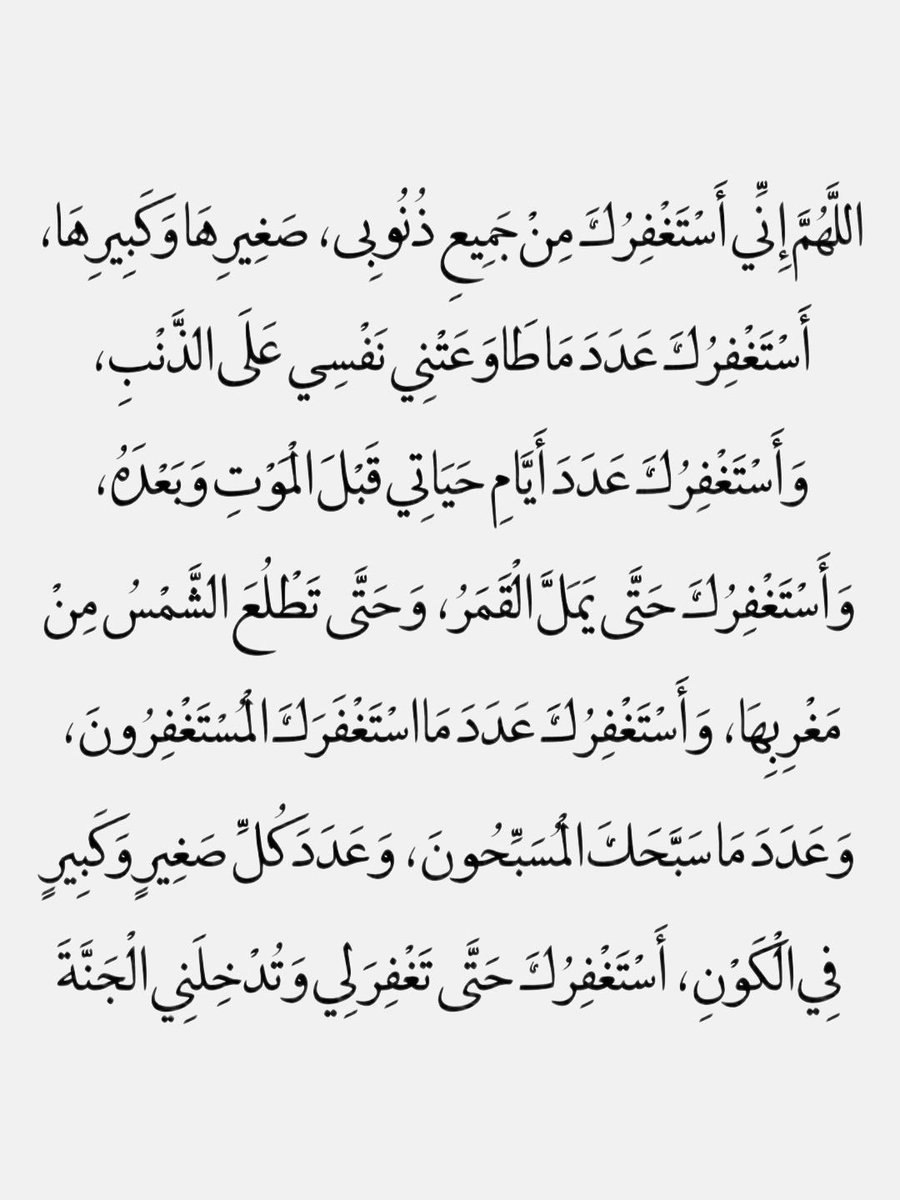 اللَّهُمَّ إِنِّي أَسْتَغْفِرُكَ مِنْ جَمِيعِ ذُنُوبِى، صَغِيرِهَا وَكَبِيرِهَا،
أَسْتَغْفِرُكَ عَدَدَ مَا طَاوَعَتْنِي نَفْسِي عَلَى الذَّنْبِ،
وَأَسْتَغْفِرُكَ عَدَدَ أَيَّامِ حَيَاتِي قَبْلَ الْمَوْتِ وَبَعْدَهُ،
وَأَسْتَغْفِرُكَ حَتَّى يَمَلَّ الْقَمَرُ، وَحَتَّى تَطْلُعَ الشَّمْسُ مِنْ
مَغْرِبِهَا، وَأَسْتَغْفِرُكَ عَدَدَ مَا اسْتَغْفَرَكَ الْمُسْتَغْفِرُونَ،
وَعَدَدَ مَا سَبَّحَكَ الْمُسَبِّحُونَ، وَعَدَدَ كُلِّ صَغِيرٍ وَكَبِيرٍ
فِي الْكَوْنِ، أَسْتَغْفِرُكَ حَتَّى تَغْفِرَ لِي وَتُدْخِلَنِي الْجَنَّةَ